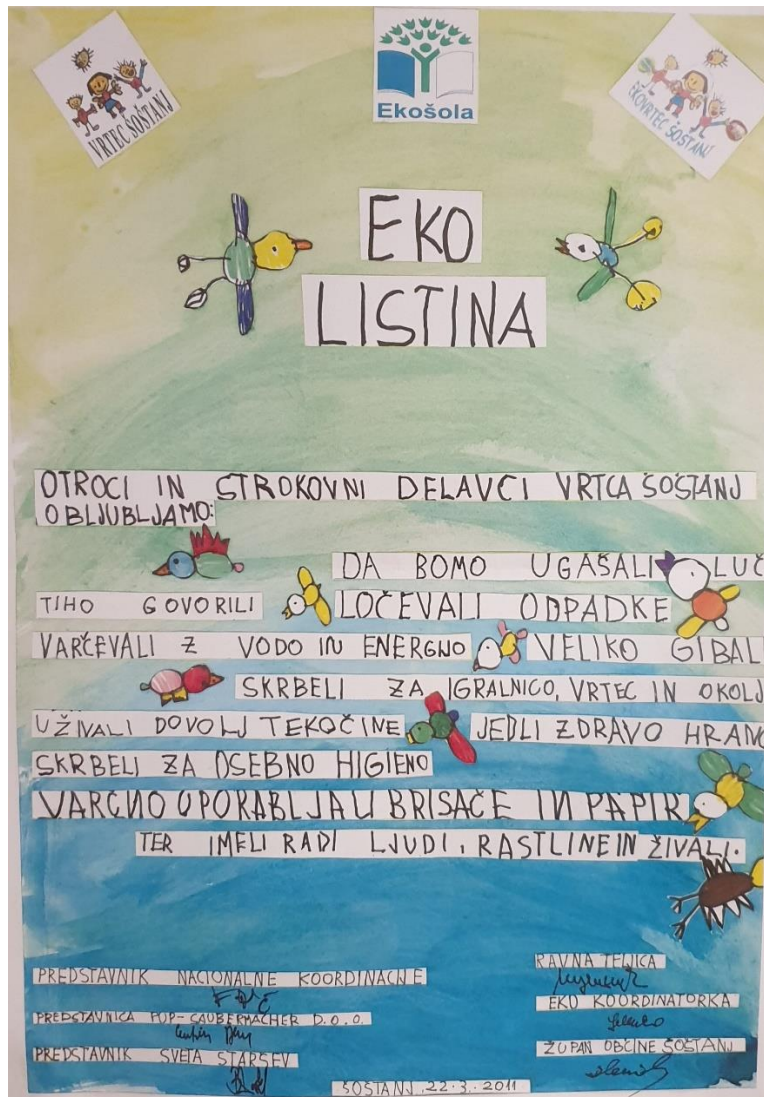 VRTEC ŠOŠTANJ
Ekošola
EKOVRTEC ŠOŠTANJ
EKO
LISTINA
OTROCI IN STROKOVNI DELAVCI VRTCA ŠOŠTANJ
OBLJUBLJAMO:
DA BOMO UGAŠALI LUČ
TIHO GOVORILI LOČEVALI ODPADKE
VARČEVALI Z VODO IN ENERGIJO VELIKO GIBAL
SKRBELI ZA IGRALNICO, VRTEC IN OKOLJ
UŽIVALI DOVOLJ TEKOČINE JEDLI ZDRAVO HRANO
SKRBELI ZA OSEBNO HIGIENO
VARČNO UPORABLJALI BRISAČE IN PAPIR
TER IMELI RADI LJUDI, RASTLINE IN ŽIVALI.
PREDSTAVNIK NACIONALNE KOORDINACIJE
RAVNATELJICA
EKO KOORDINATORKA
PREDSTAVNICA PUP-SAUBERMACHER D.O.O.
ŽUPAN OBČINE ŠOŠTANJ
PREDSTAVNIK SVETA STARŠEV
ŠOŠTANJ, 22.3.2011